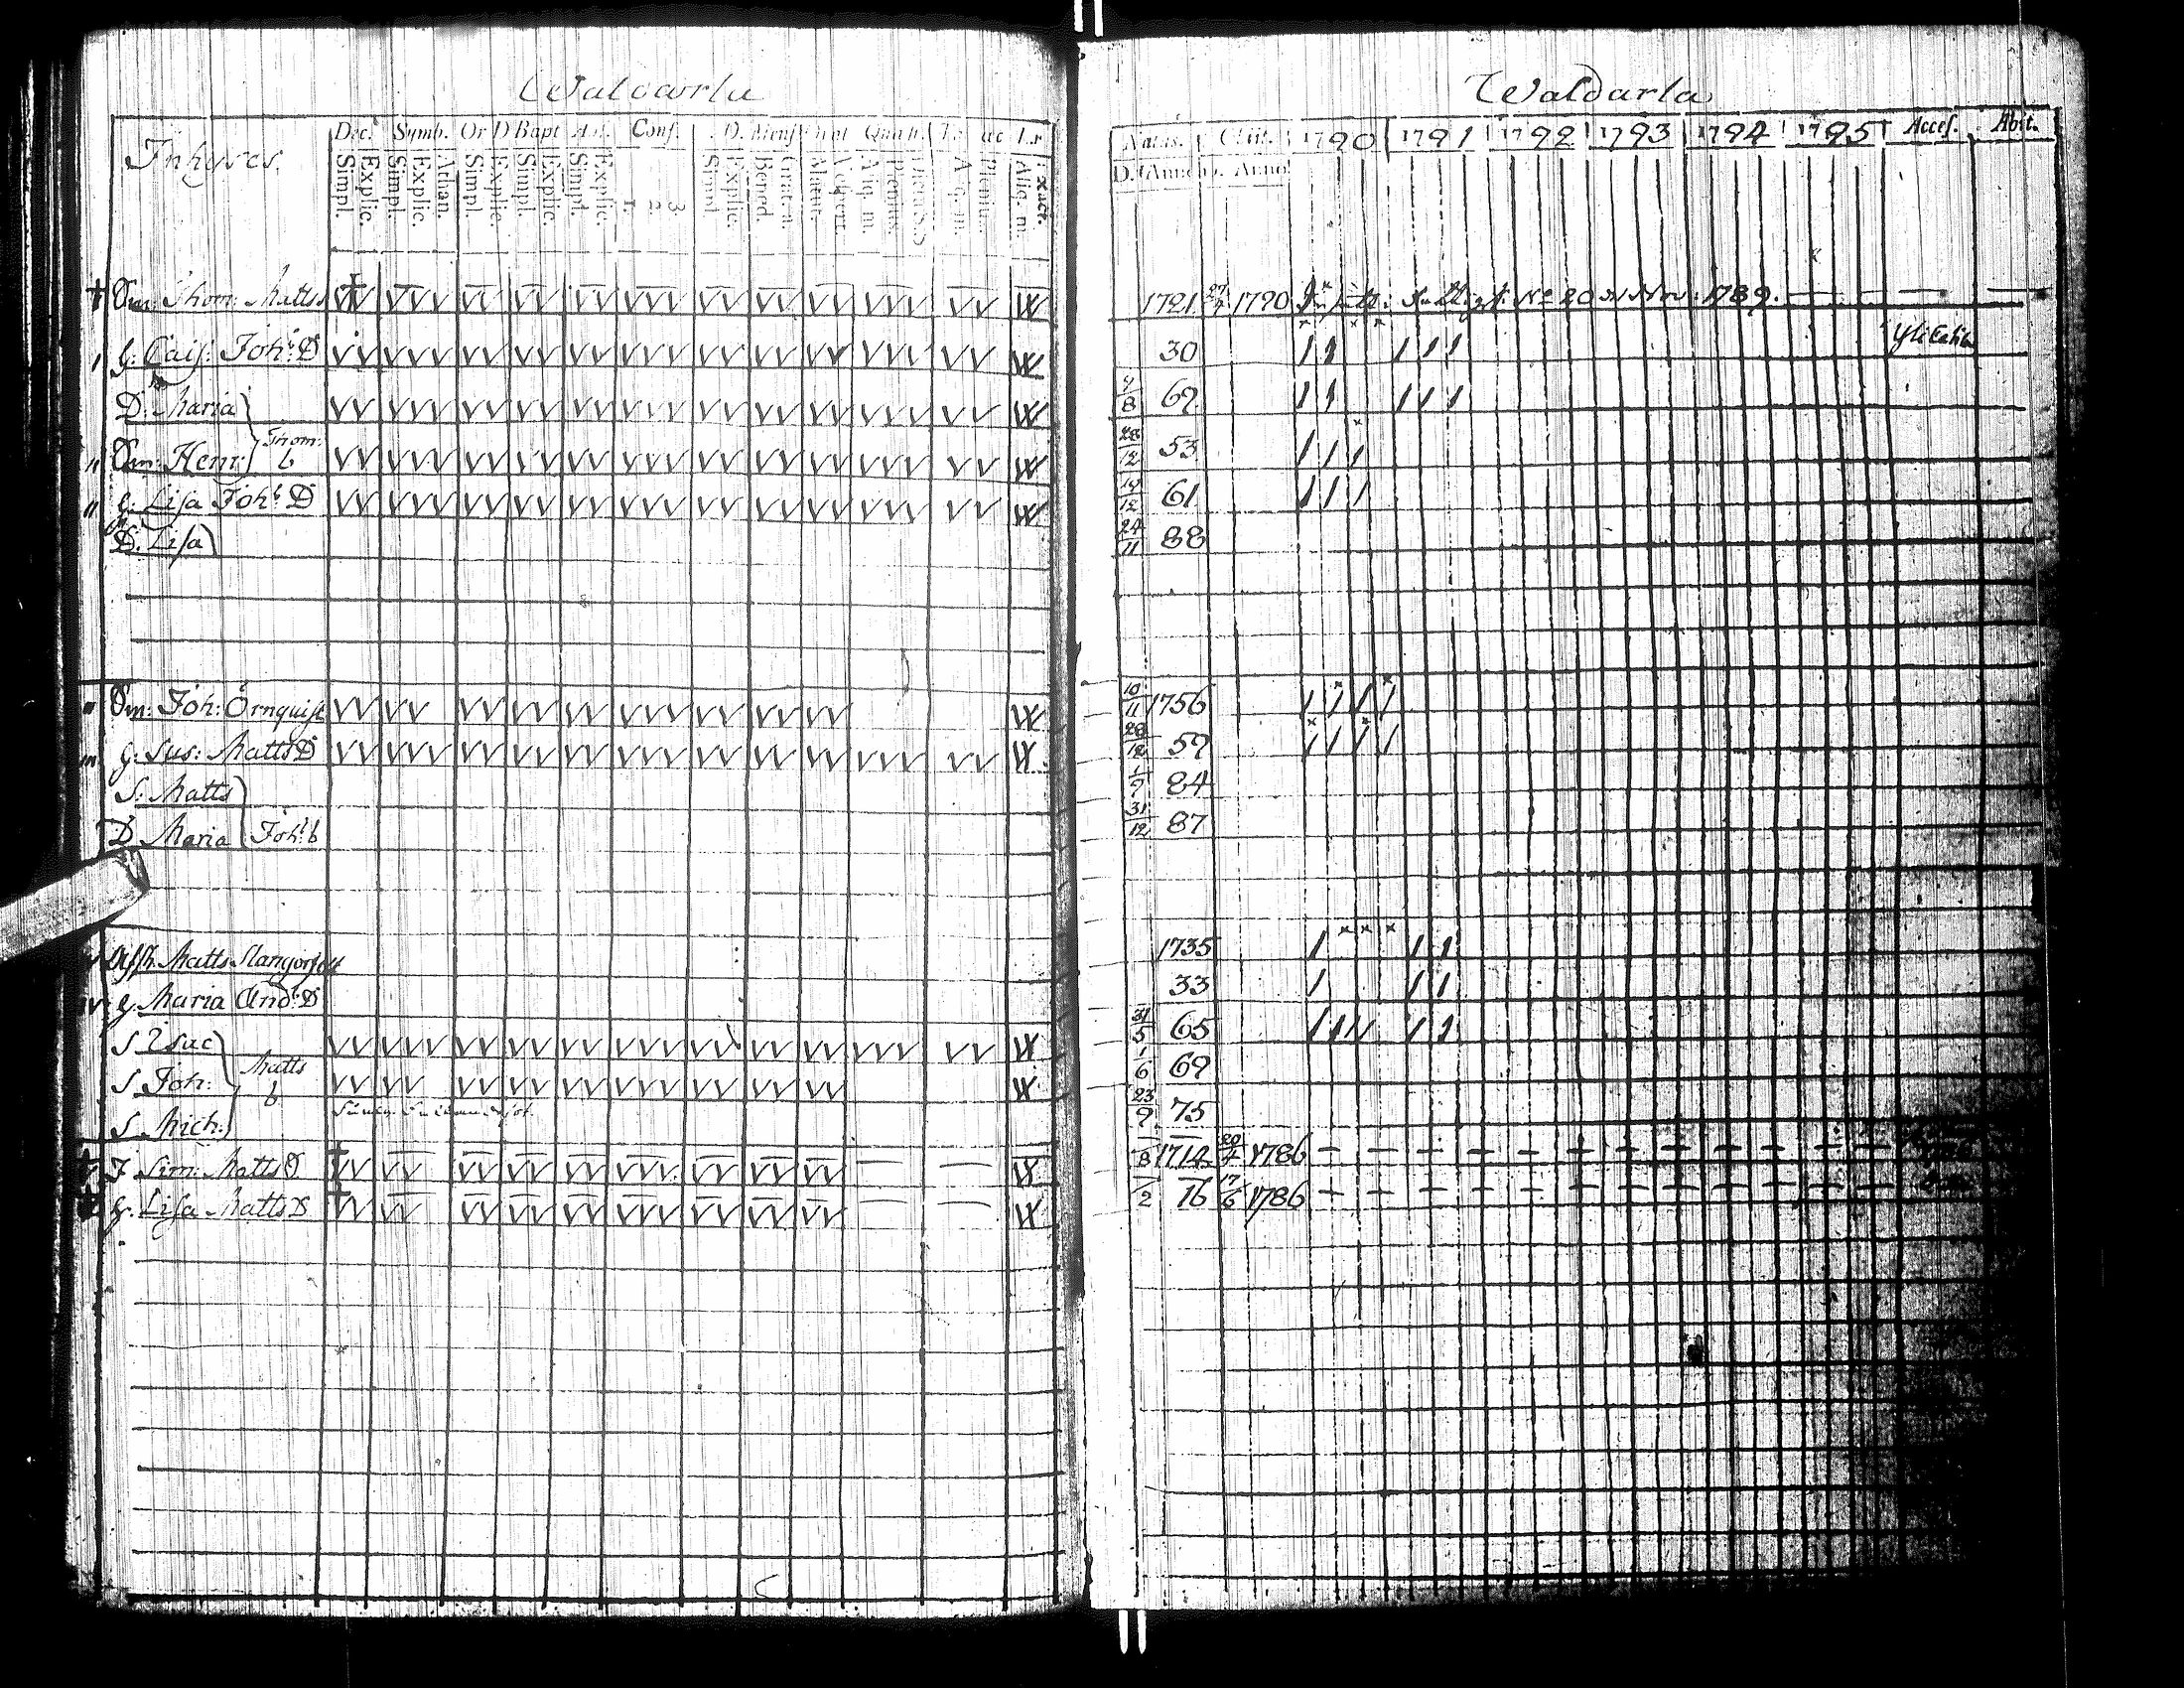 Waldarla
Inhyses.
Dec. Symb. Or D Bapt Abs. Conf. D. Mens Quæst.
Simpl. Explic. Simpl. Explic. Athan. Simpl. Explic. Simpl. Explic. Simpl. Explic. 1. 2. 3 Simpl. Explic. Bened. Grat. a. Matut. Vespert. Aliq. m. Plenius. Dicta S.S. Aliq. m. Plenius. Aliq. m. Exact.
Sm: Thom: Matts
h: Cais: Joh: D
D: Maria
Sm: Henr: Thom: b
h. Lisa Joh: D
D. Lisa
Sm: Joh: Örnquist
h: Sus: Matts D
S: Matts
D Maria Joh: b
Matts
h. Maria And: D
S Isac
S Joh: Matts b
S Mich:
J Sim: Matts
h. Lisa Matts D
Waldarla
Natus. Obiit. 1790 1791 1792 1793 1794 1795 Acces. Abit.
D. Anno D. Anno
1721 27/7 1790 No 20 Nov: 1789.
30
7/8 69
28/12 53
19/12 61
24/11 88
10/11 1756
28/12 59
1/9 84
31/12 87
1735
33
31/5 65
1/6 69
23/9 75
/8 1714 20/4 1786
/2 16 17/6 1786